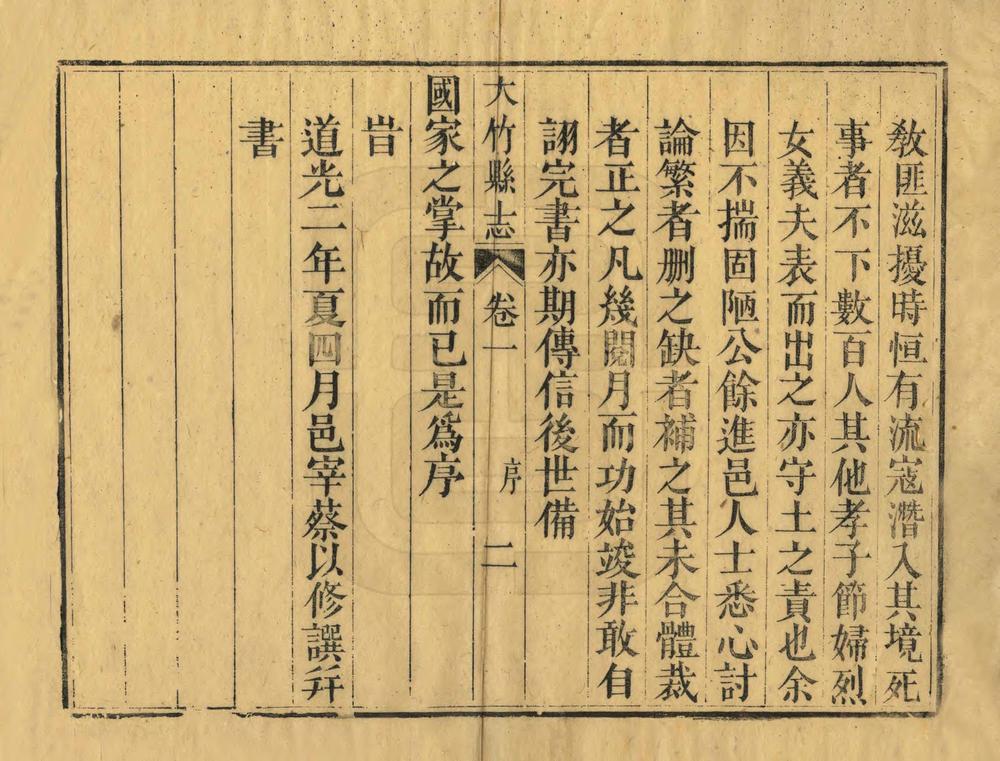 教匪滋擾時恒有流寇潛入其境死
事者不下數百人其他孝子節婦烈
女義夫表而出之亦守土之責也余
因不揣固陋公餘進邑人士悉心討
論繁者刪之缺者補之其未合體裁
者正之凡幾閱月而功始竣非敢自
詡完書亦期傳信後世備
大竹縣志 卷一 序 二
國家之掌故而已是爲序
旹
道光二年夏四月邑宰蔡以修譔并
書